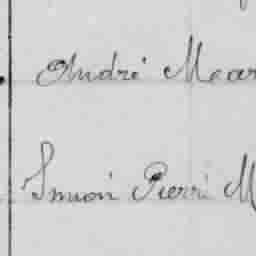 André Mear
Simon Pierre M